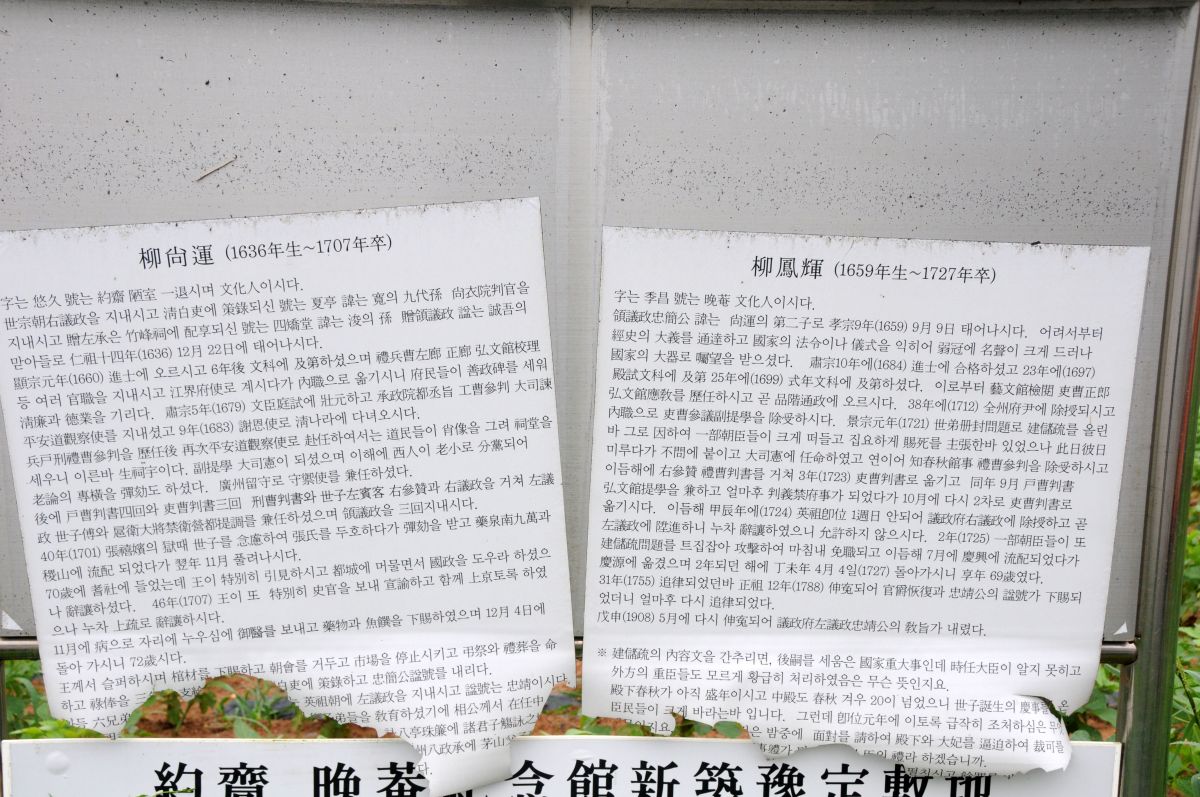 柳尙運 (1636年生~1707年卒)
字는 悠久 號는 約齋 陋室 一退시며 文化人이시다.
世宗朝右議政을 지내시고 淸白吏에 策錄되신 號는 夏亭 諱는 寬의 九代孫 尙衣院判官을
지내시고 贈左承은 竹峰祠에 配享되신 號는 四矯堂 諱는 浚의 孫 贈領議政 諡는 誠吾의
맏아들로 仁祖十四年(1636) 12月 22日에 태어나시다.
顯宗元年(1660) 進士에 오르시고 6年後 文科에 及第하셨으며 禮兵曹左廊 正廊 弘文館校理
등 여러 官職을 지내시고 江界府使로 계시다가 內職으로 옮기시니 府民들이 善政碑를 세워
淸廉과 德業을 기리다. 肅宗5年(1679) 文臣庭試에 壯元하고 承政院都丞旨 工曹參判 大司諫
平安道觀察使를 지내셨고 9年(1683) 謝恩使로 淸나라에 다녀오시다.
兵戶刑禮曹參判을 歷任後 再次平安道觀察使로 赴任하여서는 道民들이 肖像을 그려 祠堂을
세우니 이른바 生祠宇이다. 副提學 大司憲이 되셨으며 이해에 西人이 老小로 分黨되어
老論의 專橫을 彈劾도 하셨다. 廣州留守로 守禦使를 兼任하셨다.
後에 戶曹判書四回와 吏曹判書三回 刑曹判書와 世子左賓客 右參贊과 右議政을 거쳐 左議
政 世子傅와 扈衛大將禁衛營都提調를 兼任하셨으며 領議政을 三回지내시다.
40年(1701) 張禧嬪의 獄때 世子를 念慮하여 張氏를 두호하다가 彈劾을 받고 藥泉南九萬과
稷山에 流配 되었다가 翌年 11月 풀려나시다.
70歲에 耆社에 들었는데 王이 特別히 引見하시고 都城에 머물면서 國政을 도우라 하셨으
나 辭讓하셨다. 46年(1707) 王이 또 特別히 史官을 보내 宣諭하고 함께 上京토록 하였
으나 누차 上疏로 辭讓하시다.
11月에 病으로 자리에 누우심에 御醫를 보내고 藥物과 魚饌을 下賜하였으며 12月 4日에
돌아 가시니 72歲시다.
王께서 슬퍼하시며 棺材를 下賜하고 朝會를 거두고 市場을 停止시키고 弔祭와 禮葬을 命
하고 祿俸을 三年 白吏에 策錄하고 忠簡公諡號를 내리다.
英祖朝에 左議政을 지내시고 諡號는 忠靖이시다
六兄弟 弟들을 敎育하셨기에 相公께서 在任中
八亭珠簾에 諸君子觴詠之
州八政承에 茅山
다.
柳鳳輝 (1659年生~1727年卒)
字는 季昌 號는 晩菴 文化人이시다.
領議政忠簡公 諱는 尙運의 第二子로 孝宗9年(1659) 9月 9日 태어나시다. 어려서부터
經史의 大義를 通達하고 國家의 法令이나 儀式을 익히어 弱冠에 名聲이 크게 드러나
國家의 大器로 囑望을 받으셨다. 肅宗10年에(1684) 進士에 合格하셨고 23年에(1697)
殿試文科에 及第 25年에(1699) 式年文科에 及第하셨다. 이로부터 藝文館檢閱 吏曹正郎
弘文館應敎를 歷任하시고 곧 品階通政에 오르시다. 38年에(1712) 全州府尹에 除授되시고
內職으로 吏曹參議副提學을 除受하시다. 景宗元年에(1721) 世弟册封問題로 建儲疏를 올린
바 그로 因하여 一部朝臣들이 크게 떠들고 집요하게 賜死를 主張한바 있었으나 此日彼日
미루다가 不問에 붙이고 大司憲에 任命하였고 연이어 知春秋館事 禮曹參判을 除受하시고
이듬해에 右參贊 禮曹判書를 거쳐 3年(1723) 吏曹判書로 옮기고 同年 9月 戶曹判書
弘文館提學을 兼하고 얼마후 判義禁府事가 되었다가 10月에 다시 2차로 吏曹判書로
옮기시다. 이듬해 甲辰年에(1724) 英祖卽位 1週日 안되어 議政府右議政에 除授하고 곧
左議政에 陞進하니 누차 辭讓하였으나 允許하지 않으시다. 2年(1725) 一部朝臣들이 또
建儲疏問題를 트집잡아 攻擊하여 마침내 免職되고 이듬해 7月에 慶興에 流配되었다가
慶源에 옮겼으며 2年되던 해에 丁未年 4月 4日(1727) 돌아가시니 享年 69歲였다.
31年(1755) 追律되었던바 正祖 12年(1788) 伸寃되어 官爵恢復과 忠靖公의 諡號가 下賜되
었더니 얼마후 다시 追律되었다.
戊申(1908) 5月에 다시 伸寃되어 議政府左議政忠靖公의 敎旨가 내렸다.
※ 建儲疏의 內容文을 간추리면, 後嗣를 세움은 國家重大事인데 時任大臣이 알지 못히고
外方의 重臣들도 모르게 황급히 처리하였음은 무슨 뜻인지요.
殿下春秋가 아직 盛年이시고 中殿도 春秋 겨우 20이 넘었으니 世子誕生의 慶事를 온
臣民들이 크게 바라는바 입니다. 그런데 卽位元年에 이토록 급작히 조처하심은 무
인지요 은 밤중에 面對를 請하여 殿下와 大妃를 逼迫하여 裁可를
禮라 하겠습니까.
約齋 晩菴 紀念館新築豫定敷地